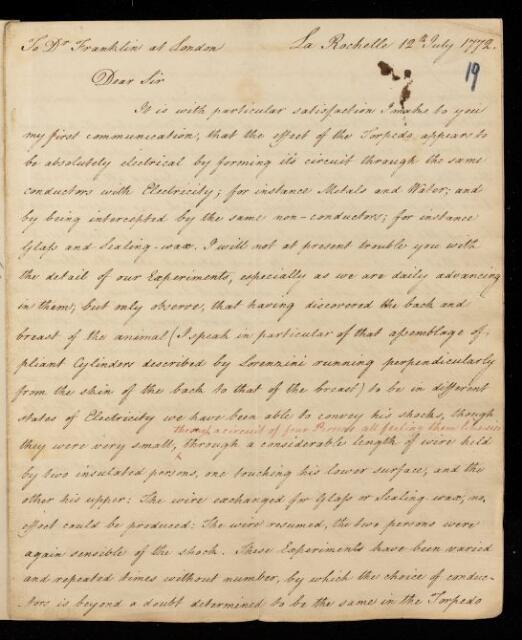 To Dr Franklin at London La Rochelle 12th July 1772.
19
Dear Sir
It is with particular satisfaction I make to you
my first communication, that the effect of the Torpedo appears to
be absolutely electrical by forming it's circuit through the same
conductors with Electricity; for instance Metals and Water; and
by being intercepted by the same non-conductors; for instance
Glass and Sealing-wax. I will not at present trouble you with
the detail of our Experiments, especially as we are daily advancing
in them; but only observe, that having discovered the back and
breast of the animal (I speak in particular of that assemblage of
pliant Cylinders described by Lorenzini running perpendicularly
from the skin of the back to that of the breast) to be in different
states of Electricity we have been able to convey his shocks, though
through a circuit of four Persons all feeling them
they were very small, through a considerable length of wire held
by two insulated persons, one touching his lower surface, and the
other his upper: The wire exchanged for Glass or Sealing-wax, no
effect could be produced: The wire resumed, the two persons were
again sensible of the shock. These Experiments have been varied
and repeated times without number, by which the choice of conduc-
tors is beyond a doubt determined to be the same in the Torpedo